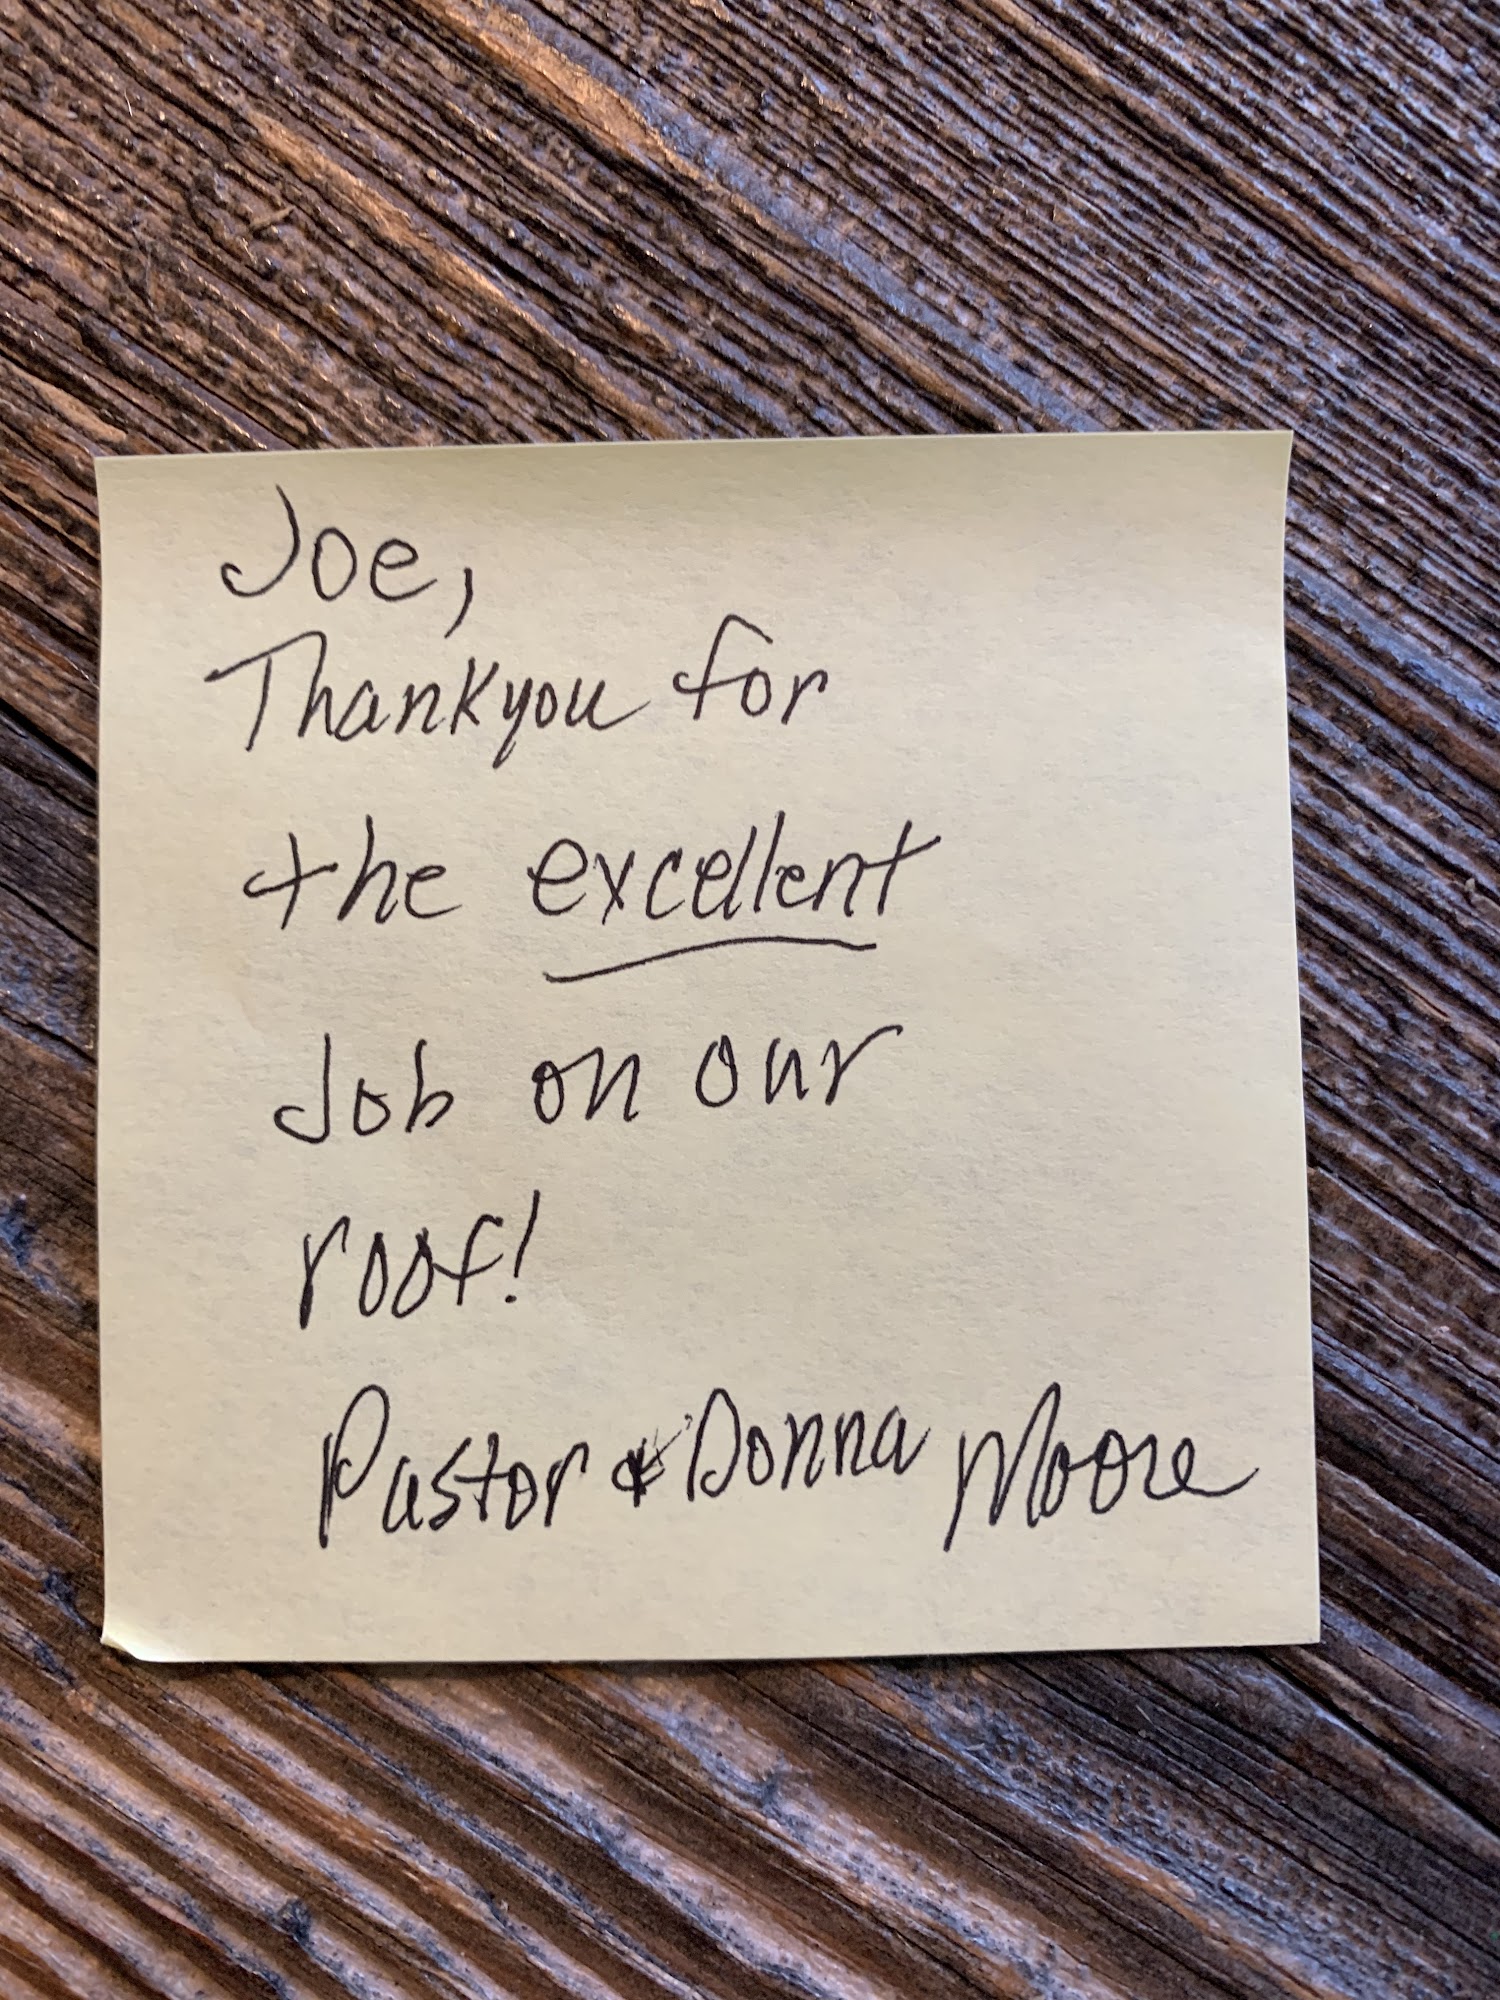 Joe,
Thankyou for
the excellent
Job on our
roof!
Pastor & Donna Moore